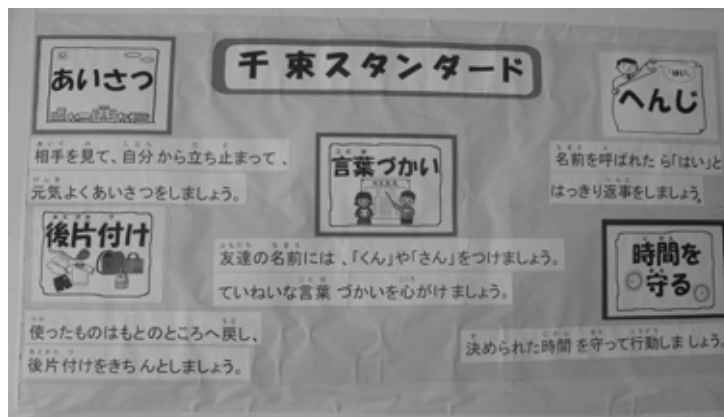 千束スタンダード
あいさつ
相手を見て、自分から立ち止まって、
元気よくあいさつをしましょう。
「はい」
へんじ
名前を呼ばれたら「はい」と
はっきり返事をしましょう。
言葉づかい
友達の名前には、「くん」や「さん」をつけましょう。
ていねいな言葉づかいを心がけましょう。
後片付け
使ったものはもとのところへ戻し、
後片付けをきちんとしましょう。
時間を
守る
決められた時間を守って行動しましょう。